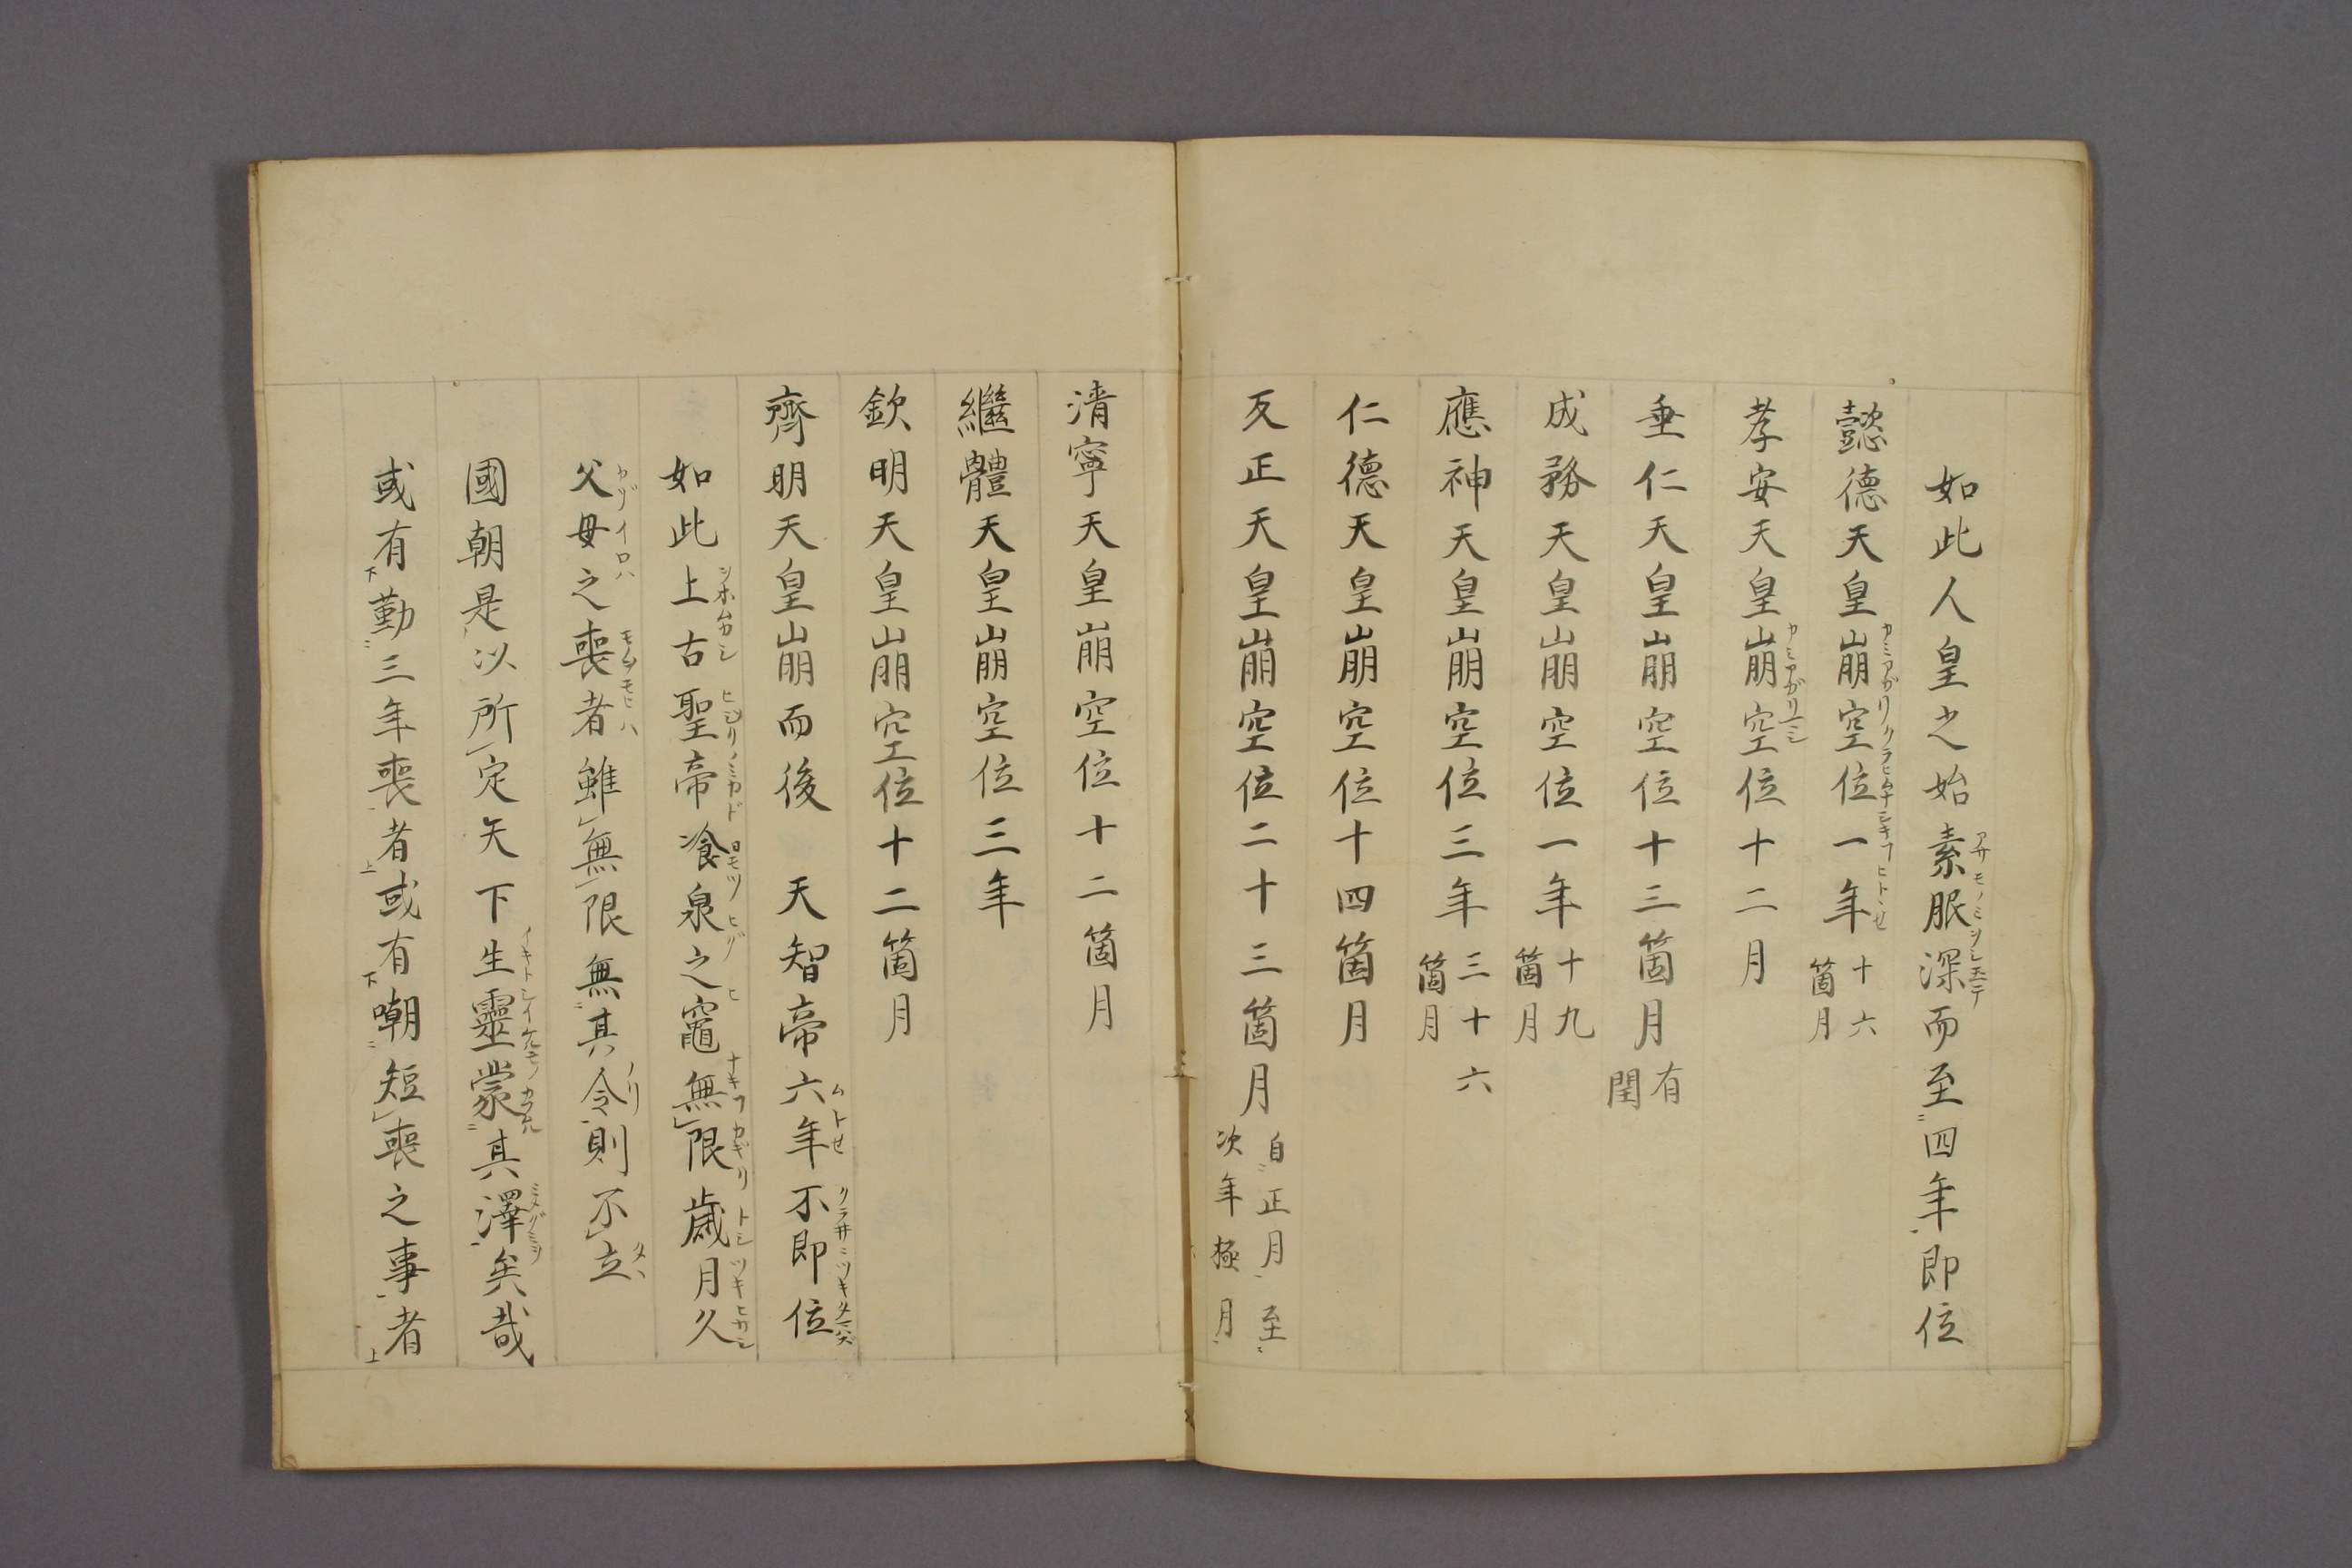 如此人皇之始素服深而至四年即位
懿德天皇崩空位一年十六箇月
孝安天皇崩空位十二月
垂仁天皇崩空位十三箇月有閏
成務天皇崩空位一年十九箇月
應神天皇崩空位三年三十六箇月
仁德天皇崩空位十四箇月
反正天皇崩空位二十三箇月自正月至次年極月
清寧天皇崩空位十二箇月
繼體天皇崩空位三年
欽明天皇崩空位十二箇月
齊明天皇崩而後 天智帝六年不即位
如此上古聖帝飡泉之竈無限歲月久
父母之喪者雖無限無其令則不立
國朝是以所定天下生靈蒙其澤矣哉
或有勤三年喪者或有嘲短喪之事者